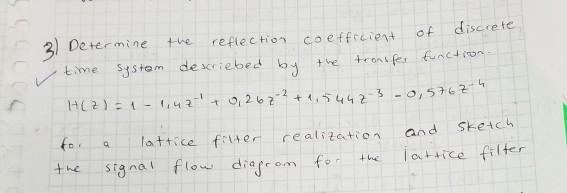 3) Determine the reflection coefficient of discrete
time system descriebed by the transfer function.
H(z) = 1 - 1,4z⁻¹ + 0,26z⁻² + 1,544z⁻³ - 0,576z⁻⁴
for a lattice filter realization and sketch
the signal flow diagram for the lattice filter